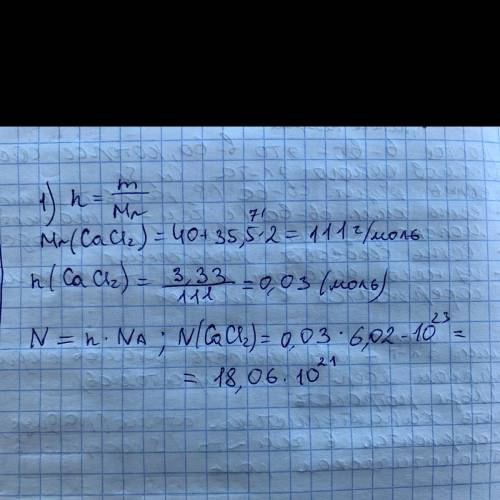 1) n = m/Mr
71
Mr(CaCl₂) = 40+35,5·2 = 111 г/моль
n(CaCl₂) = 3,33/111 = 0,03 (моль)
N = n · NA ; N(CaCl₂) = 0,03 · 6,02 - 10²³ =
= 18,06 · 10²¹